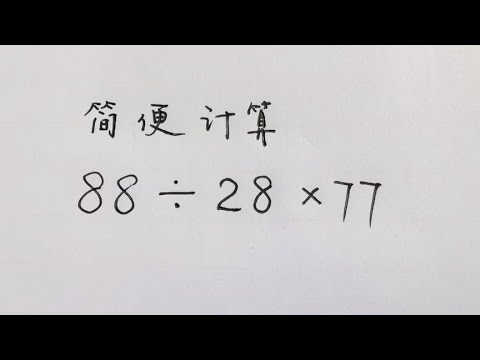 简便计算
88÷28×77